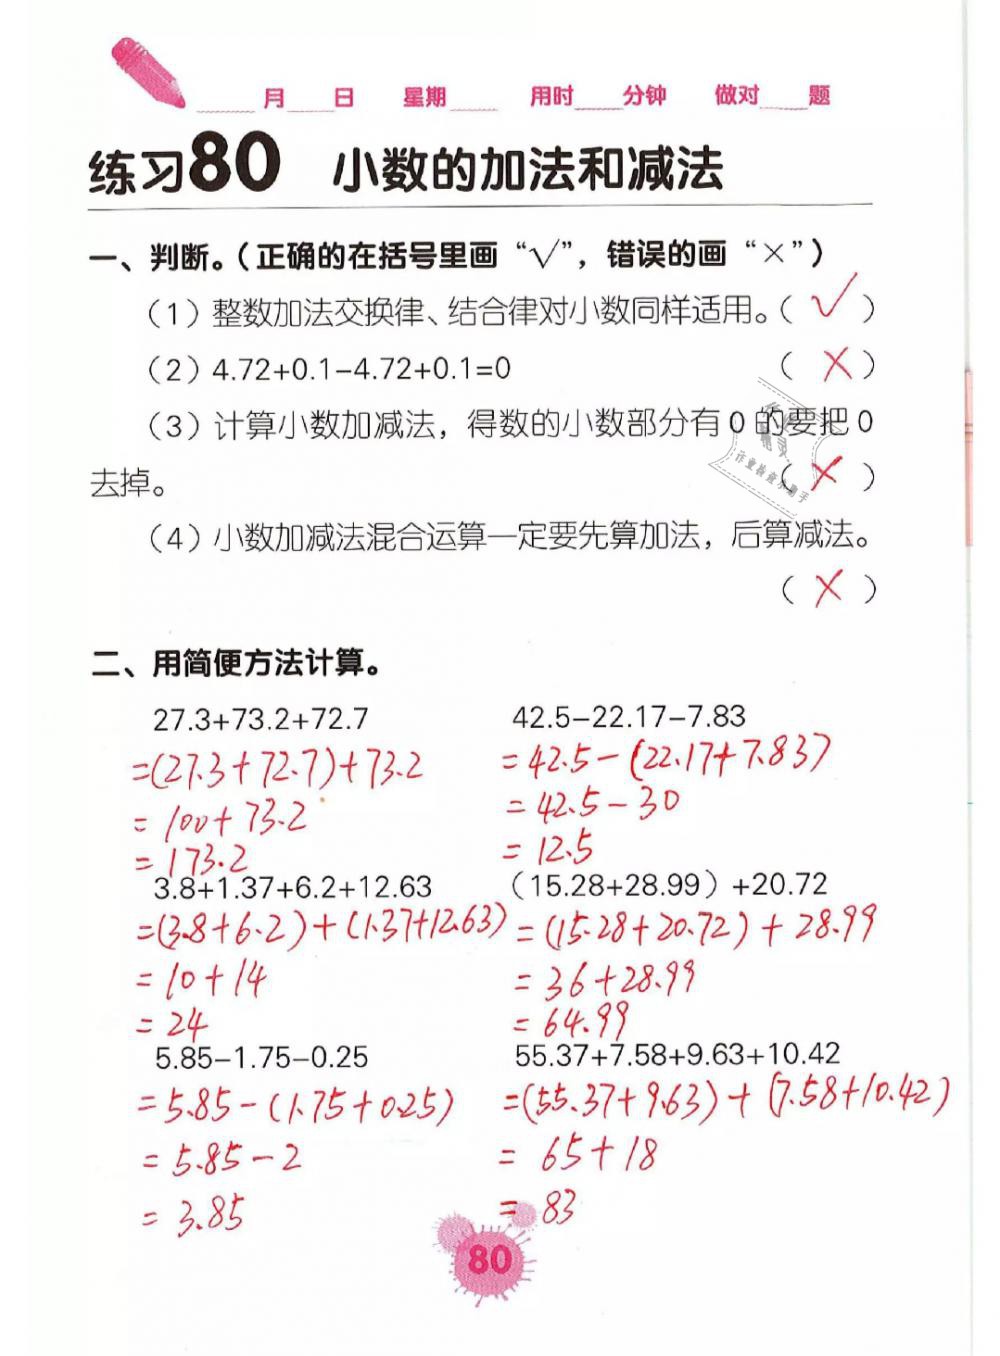 月 日 星期 用时 分钟 做对 题
练习80 小数的加法和减法
一、判断。(正确的在括号里画“√”,错误的画“×”)
(1)整数加法交换律、结合律对小数同样适用。( √ )
(2)4.72+0.1-4.72+0.1=0 ( × )
(3)计算小数加减法,得数的小数部分有0的要把0
去掉。 ( × )
(4)小数加减法混合运算一定要先算加法,后算减法。
( × )
二、用简便方法计算。
27.3+73.2+72.7
=(27.3+72.7)+73.2
=100+73.2
=173.2
42.5-22.17-7.83
=42.5-(22.17+7.83)
=42.5-30
=12.5
3.8+1.37+6.2+12.63
=(3.8+6.2)+(1.37+12.63)
=10+14
=24
(15.28+28.99)+20.72
=(15.28+20.72)+28.99
=36+28.99
=64.99
5.85-1.75-0.25
=5.85-(1.75+0.25)
=5.85-2
=3.85
55.37+7.58+9.63+10.42
=(55.37+9.63)+(7.58+10.42)
=65+18
=83
80